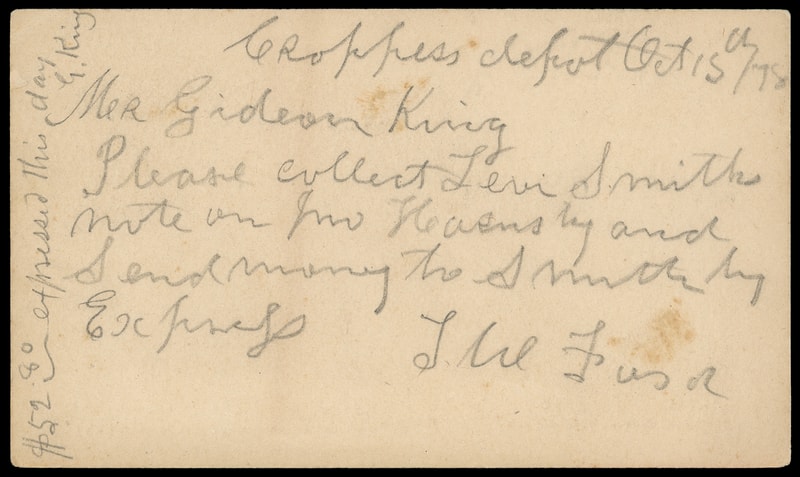 Croppess depot Oct 15th/78
Mr Gideon King
Please collect Levi Smith
note on Jno Hornsby and
Send money to Smith by
Express
$52.80 expressed this day
G. King